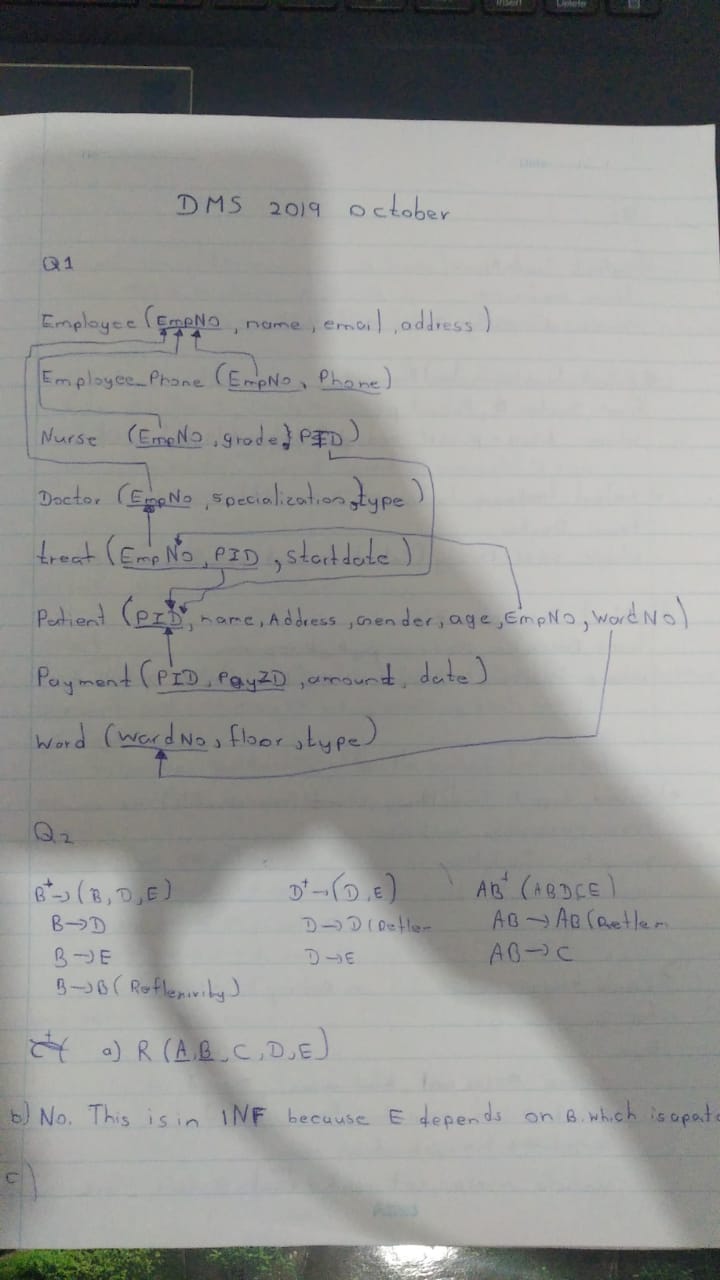 Insert Delete
DMS 2019 october
Q1
Employee (EmpNo, name, email, address)
Employee_Phone (EmpNo, Phone)
Nurse (EmpNo, grade, PID)
Doctor (EmpNo, specialization, type)
treat (EmpNo, PID, startdate)
Patient (PID, name, Address, Gender, age, EmpNo, WardNo)
Payment (PID, PayID, amount, date)
Word (WardNo, floor, type)
Q2
B⁺→(B, D, E) D⁺→(D, E) AB⁺ (ABDCE)
B→D D→D (Reflex AB→AB (Reflex
B→E D→E AB→C
B→B (Reflexivity)
a) R (A, B, C, D, E)
b) No. This is in 1NF because E depends on B. which is a part
c)